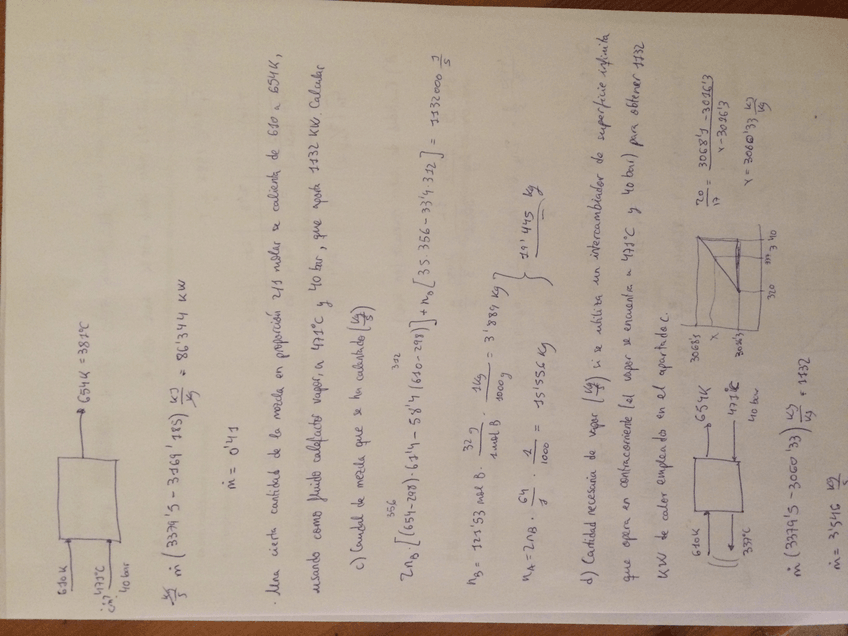 610K
654K = 381ºC
471ºC
40 bar
ṁ (3379'5 - 3169'185) kJ/kg = 86'344 KW
ṁ = 0'41
· Una cierta cantidad de la mezcla en proporción 2/1 molar se calienta de 610 a 654K,
usando como fluido calefactor vapor, a 471ºC y 40 bar, que aporta 1132 KW. Calcular
c) Caudal de mezcla que se ha calentado (kg/s)
356 312
2n_B · [(654-298)·61'4 - 58'4 (610-298)] + n_B [35·356 - 33'4·312] = 1132000 J/s
n_B = 121'53 mol B · 32 g / 1 mol B · 1Kg / 1000g = 3'889 kg
n_A = 2n_B · 64 / 1 · 1 / 1000 = 15'556 Kg
} 19'445 kg
d) Cantidad necesaria de vapor (kg/s) si se utiliza un intercambiador de superficie infinita
que opera en contracorriente (el vapor se encuentra a 471ºC y 40 bar) para obtener 1132
KW de calor empleado en el apartado c.
610K
654K
337ºC
471ºC
40 bar
3068'1
x
3016'3
320
337
340
20/17 = (3068'1 - 3016'3) / (x - 3016'3)
x = 3060'33 kJ/kg
ṁ (3379'5 - 3060'33) kJ/kg = 1132
ṁ = 3'546 kg/s